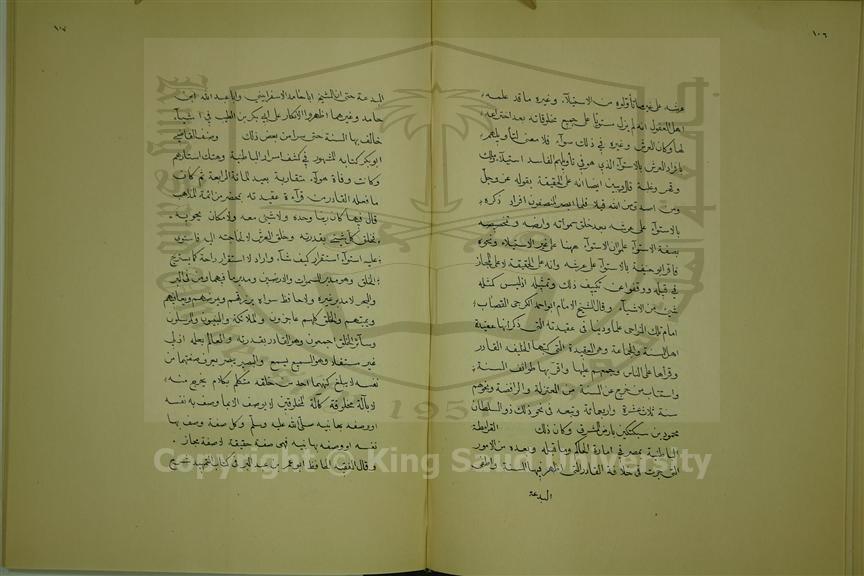 ١٠٦
عرشه على غير ما تأولوه من الاستيلاء وغيره ما قد علمه
اهل المعقول انه لم يزل مستوليا على جميع مخلوقاته بعد اختراعه
لها وكان العرش وغيره في ذلك سوآء فلا معنى لتأويلهم
بافراد العرش بالاستوآء الذي هو في تأويلهم الفاسد استيلآء وملك
وقهر وغلبة قال ويبين ايضا انه على الحقيقة بقوله عز وجل
ومن اصدق من الله قيلا فلما رأى المنصفون افراد ذكره
بالاستوآء على عرشه بعد خلق سمواته وارضه وتخصيصه
بصفة الاستوآء علموا ان الاستوآء ههنا على غير الاستيلاء ونحوه
فاقروا بوصفه بالاستوآء على عرشه وانه على الحقيقة لا على المجاز
في قيله ووقفوا عن تكييف ذلك وتمثيله اذ ليس كمثله
شيئ من الاشيآء وقال الشيخ الامام ابو احمد الكرجي القصاب
امام تلك النواحي علما ودينا في عقيدته التي ذكر انها عقيدة
اهل السنة والجماعة وهي العقيدة التي كتبها الخليفة القادر
وقرأها على الناس وجمعهم عليها واقر بها طوائف السنة
واستتاب من خرج عن السنة من المعتزلة والرافضة ونحوهم
سنة ثلاث عشرة واربعمائة وتبعه في نحو ذلك ذو السلطان
محمود بن سبكتكين بارض المشرق وكان ذلك القرامطة
الباطنية بمصر في امارة الحاكم وما قبله وبعده من الامور
التي جرت في خلافة القادر التي اظهر فيها السنة واطفى
البدعة
١٠٧
البدعة حتى ان الشيخ ابا حامد الاسفرايني وابا عبد الله ابن
حامد وغيرهما اظهروا الانكار على ابي بكر بن الطيب في اشيآء
خالف بها السنة حتى من بعض ذلك وصنف القاضي
ابو بكر كتابه المشهور في كشف اسرار الباطنية وهتك استارهم
وكانت وفاة هولآء متقاربة بعيد المائة الرابعة ثم كان
ما فعله القادر من قرآءة عقيدته بمحضر من ائمة المذاهب
قال فيها كان ربنا وحده ولا شيئ معه ولا مكان يحويه
فخلق كل شيئ بقدرته وخلق العرش لا لحاجته اليه فاستوى
عليه استوآء استقرار كيف شآء واراد لا استقرار راحة كما يستريح
الخلق وهو مدبر السموات والارضين ومدبر ما فيهما ومن في البر
والبحر لا مدبر غيره ولا حافظ سواه يرزقهم ويمرضهم ويعافيهم
ويميتهم والخلق كلهم عاجزون والملائكة والنبيون والمرسلون
وسآئر الخلق اجمعون وهو القادر بقدرته والعالم بعلم ازلي
غير مستفاد وهو السميع بسمع والبصير ببصر يعرف صفتهما من
نفسه لا يبلغ كنههما احد من خلقه متكلم بكلام يخرج منه
لا بآلة مخلوقة كآلة المخلوقين لا يوصف الا بما وصف به نفسه
او وصفه بها نبيه صلى الله عليه وسلم وكل صفة وصف بها
نفسه او وصفه بها نبيه فهي صفة حقيقة لا صفة مجاز
وقال الفقيه الحافظ ابو عمر بن عبد البر في كتاب التمهيد
Copyright © King Saud University
1957